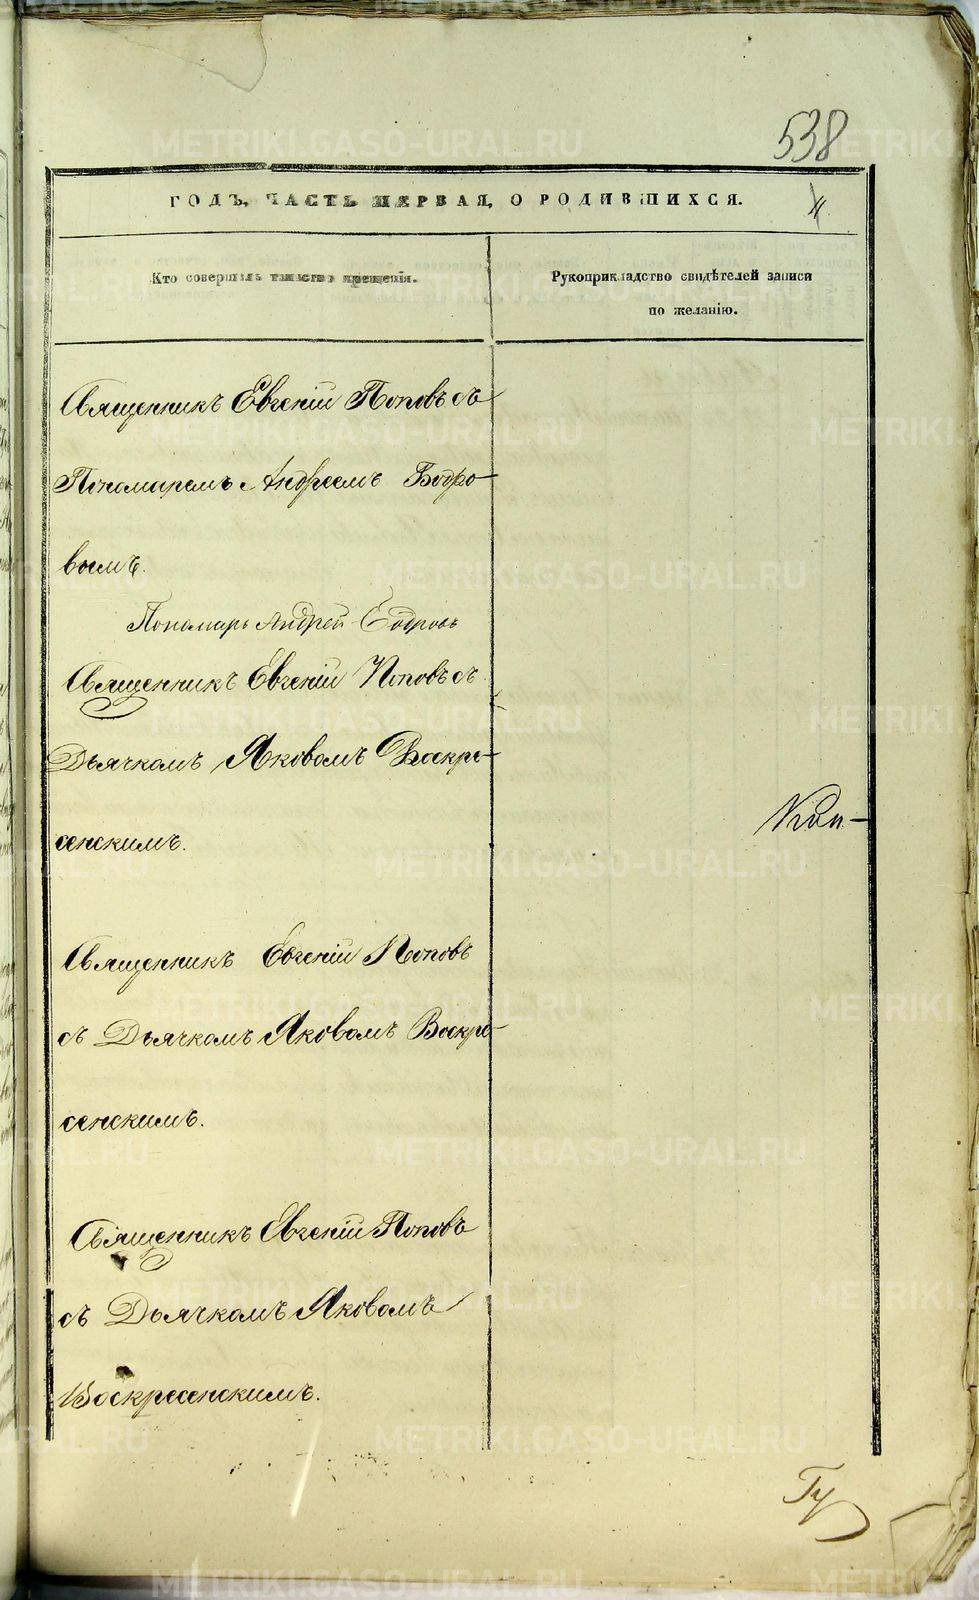 538
ГОДЪ, ЧАСТЬ ПЕРВАЯ, О РОДИВШИХСЯ.
4.
Кто совершалъ таинство крещенія.
Рукоприкладство свидѣтелей записи
по желанію.
Священникъ Евгеній Поповъ съ
Пономаремъ Андреемъ Бодро-
вымъ.
Пономарь Андрей Бодровъ
Священникъ Евгеній Поповъ съ
Дьячкомъ Яковомъ Воскре-
сенскимъ.
Священникъ Евгеній Поповъ
съ Дьячкомъ Яковомъ Воскре-
сенскимъ.
Священникъ Евгеній Поповъ
съ Дьячкомъ Яковомъ
Воскресенскимъ.
METRIKI.GASO-URAL.RU